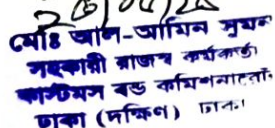 মোঃ আল-আমিন সুমন
সহকারী রাজস্ব কর্মকর্তা
কাস্টমস বন্ড কমিশনারেট
ঢাকা (দক্ষিণ) ঢাকা।